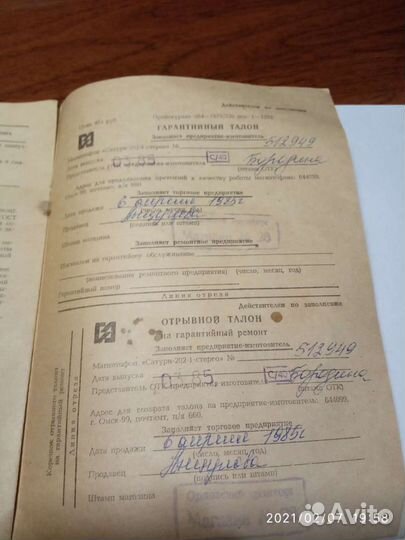 Действителен по заполнении
Цена 40 руб. Прейскурант 084-
ГАРАНТИЙНЫЙ ТАЛОН
Заполняет предприятие-изготовитель
Магнитофон «Сатурн- -стерео» № 512949
Дата выпуска 03.85
Представитель изготовителя С/40 Бородина
Адрес для предъявления претензий к качеству работы магнитофона: 644099,
г. Омск-99, почтамт, п/я 660.
Заполняет торговое предприятие
Дата продажи 6 апреля 1985г
(число, месяц, год)
Продавец
(подпись или штамп)
Штамп магазина
Заполняет ремонтное предприятие
Поставлен на гарантийное обслуживание
(наименование ремонтного предприятия) (число, месяц, год)
Гарантийный номер
Линия отреза
Действителен по заполнении
ОТРЫВНОЙ ТАЛОН
на гарантийный ремонт
Заполняет предприятие-изготовитель
Магнитофон «Сатурн-202-1-стерео» № 512949
Дата выпуска 03.85
Представитель ОТК предприятия-изготовителя С/40 Бородина
(штамп ОТК)
Адрес для возврата талона на предприятие-изготовитель: 644099,
г. Омск-99, почтамт, п/я 660.
Заполняет торговое предприятие
Дата продажи 6 апреля 1985г
(число, месяц, год)
Продавец
(подпись или штамп)
Штамп магазина
Корешок отрывного талона
на гарантийный ремонт
Линия отреза
Avito
2021/02/07 19:58